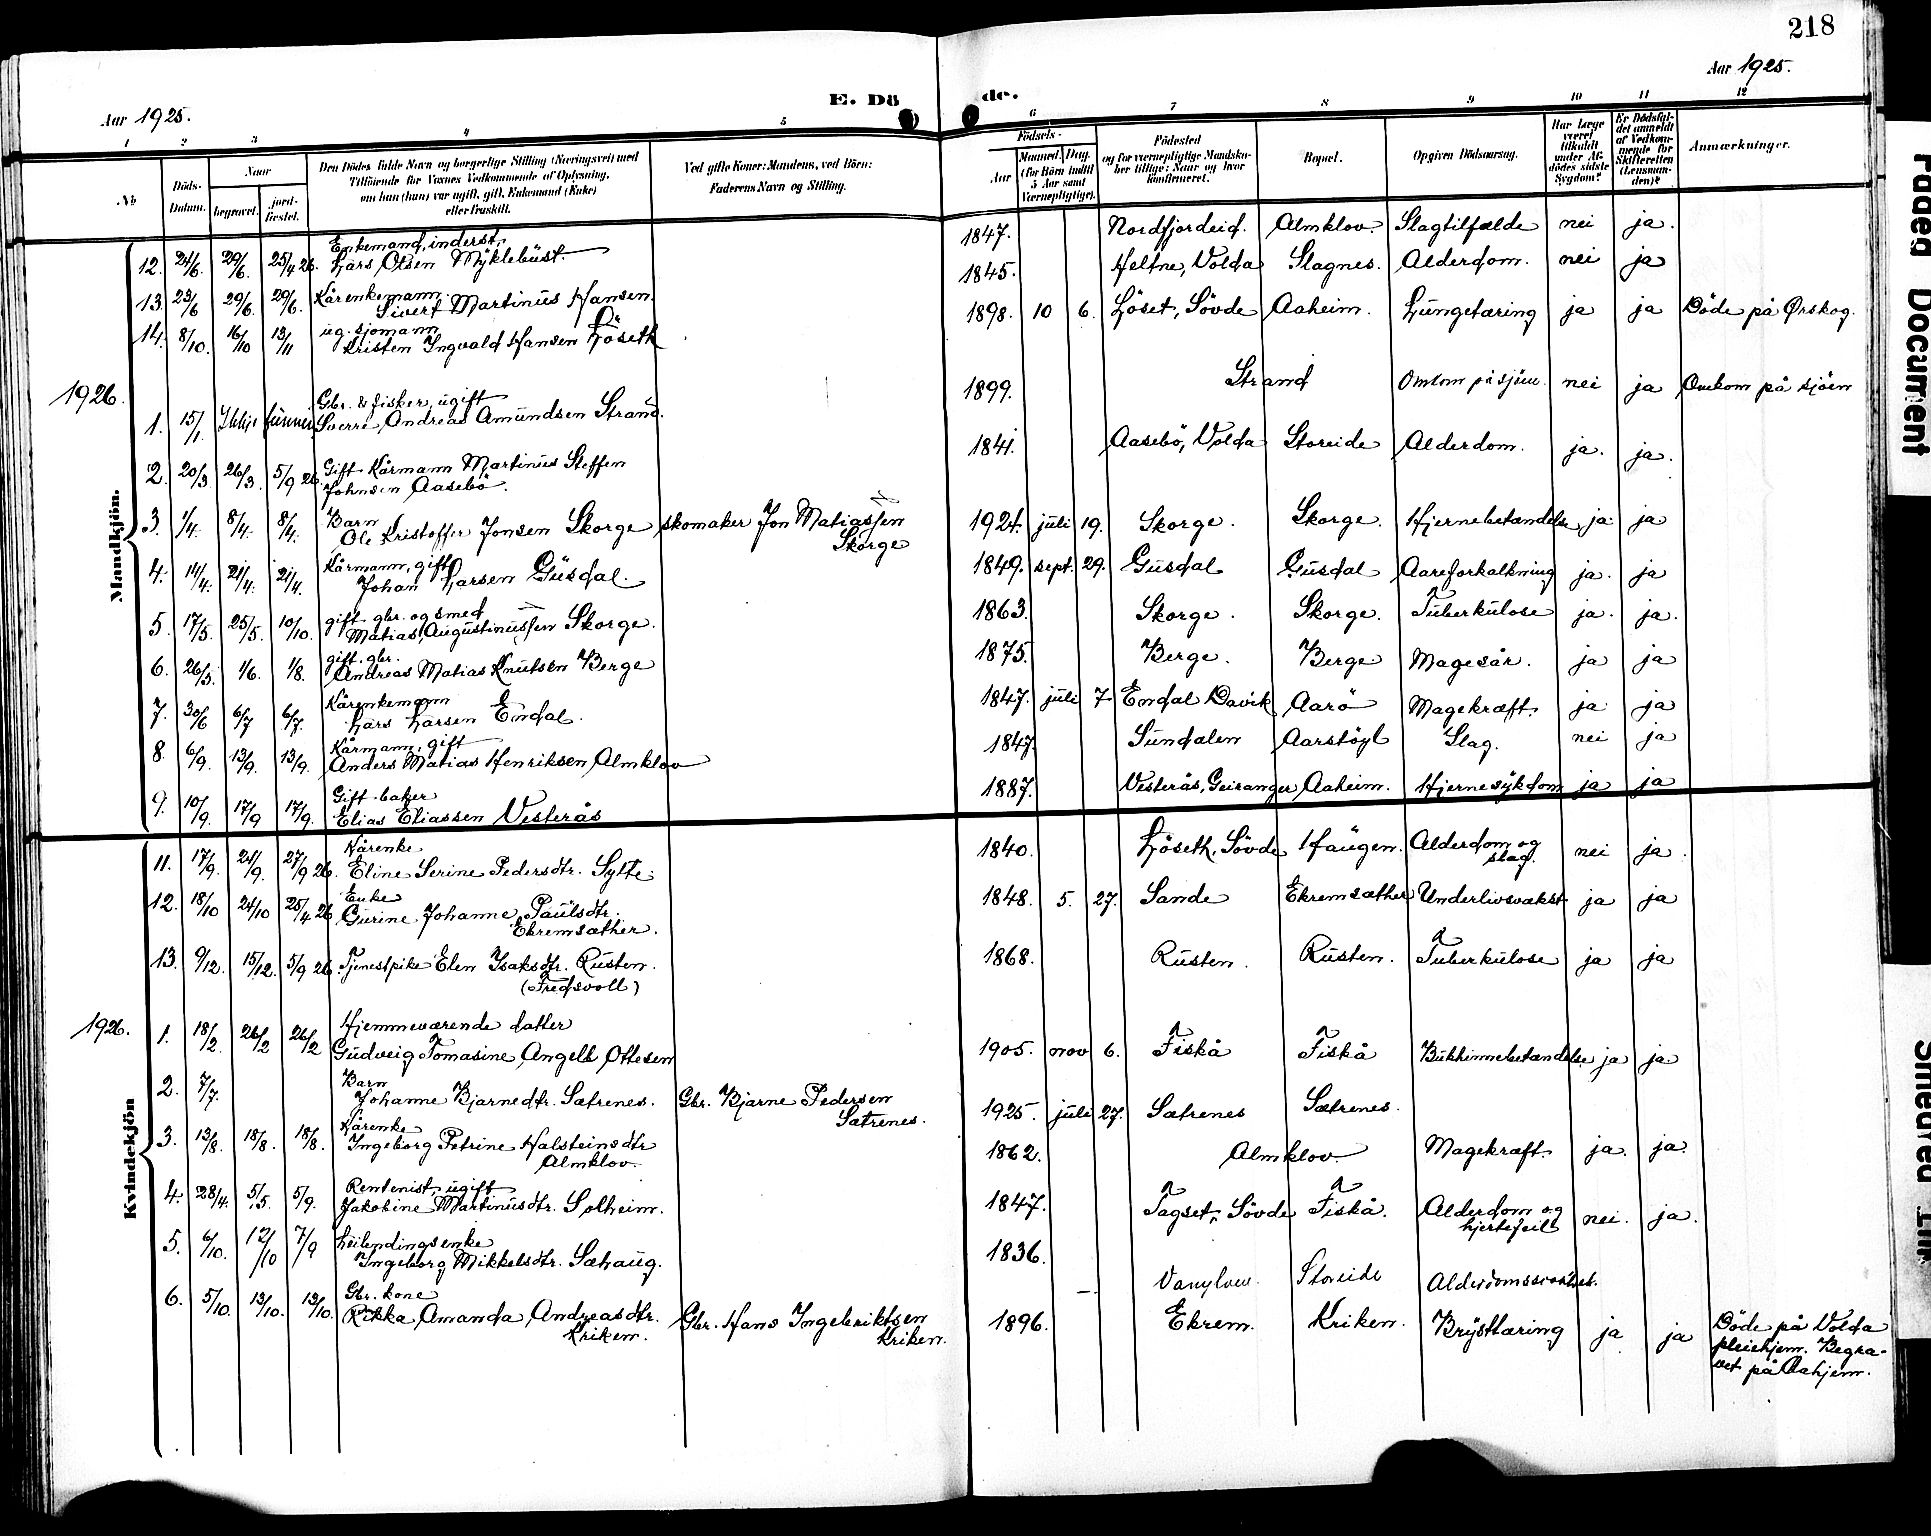 218
Aar 1925.
Aar 1925.
E. Dö de.
1 2 3 4 5 6 7 8 9 10 11 12
No
Döds-Datum.
Naar
begravet.
jord-fæstet.
Den Dødes fulde Navn og borgerlige Stilling (Næringsvei) med
Tilföiende for Voxnes Vedkommende af Oplysning,
om han (hun) var ugift, gift, Enkemand (Enke)
eller fraskilt.
Ved gifte Koner: Mandens, ved Börn:
Faderens Navn og Stilling.
Födsels-
Aar
Maaned. Dag.
(for Börn indtil
5 Aar samt
Værnepligtige).
Födested
og for værnepligtige Mandska-
ber tillige: Naar og hvor
konfirmeret.
Bopæl.
Opgiven Dödsaarsag.
Har Læge
været
tilkaldt
under Af-
dödes sidste
Sygdom?
Er Dödsfal-
det anmeldt
af Vedkom-
mende for
Skifteretten
(Lensman-
den)?
Anmærkninger.
Mandkjön.
12. 24/6. 29/6. 25/4 26. Enkemand, inderst, Lars Olsen Myklebust. 1847. Nordfjordeid. Almklov. Slagtilfælde nei ja.
13. 23/6 29/6. 29/6. Kårenkemann. Sivert Martinus Hansen. 1845. Heltne, Volda Slagnes. Alderdom. nei ja
14. 8/10. 16/10 13/11 ug. sjömann Kristen Ingvald Hansen Löseth 1898. 10 6. Löset, Sövde Aaheim. Lungetæring ja ja Döde på Ørskog.
1926.
1. 15/1. Ikkje funnen Gbr. & fisker, ugift Sverre Andreas Amundsen Strand. 1899. Strand Omkom på sjöen. nei ja Omkom på sjöen
2. 20/3 26/3. 5/9 26. Gift Kårmann Martinus Steffen Johnsen Aasebö. 1841. Aasebö, Volda Storeide Alderdom. ja. ja.
3. 1/4. 8/4. 8/4. Barn Ole Kristoffer Jonsen Skorge skomaker Jon Matiassen Skorge 1924. juli 19. Skorge. Skorge. Hjernebetændelse ja ja
4. 14/4. 21/4. 21/4. Kårmann, gift Johan Larsen Gusdal. 1849. sept. 29. Gusdal Gusdal Aareforkalkning ja. ja
5. 17/5. 25/5. 10/10. gift gbr. og smed Matias Augustinussen Skorge. 1863. Skorge. Skorge. Tuberkulose ja. ja.
6. 26/5. 1/6. 1/8. gift. gbr. Andreas Matias Knutsen Berge 1875. Berge. Berge Magesår. ja ja
7. 30/6 6/7 6/7. Kårenkemann Lars Larsen Endal. 1847. juli 7 Endal Davik Aarö Magekræft. ja ja
8. 6/9. 13/9. 13/9. Kårmann, gift Anders Matias Henriksen Almklov 1847 Sundalen Aarstöyl Slag. nei ja
9. 10/9. 17/9 17/9. Gift baker Elias Eliassen Vesterås 1887. Vesterås, Geiranger Aaheim. Hjernesykdom ja ja
Kvindekjön
11. 17/9. 24/9. 27/9 26. Kårenke Eline Serine Pedersdtr. Sylte. 1840. Löseth, Sövde Haugen. Alderdom og slag. nei ja.
12. 18/10 24/10 25/4 26 Enke Gurine Johanne Paulsdtr. Ekremsæther. 1848. 5. 27. Sande Ekremsæther Underlivsvækst ja ja
13. 9/12. 15/12. 5/9 26. Tjenestpike Elen Isaksdtr. Rusten. (Fredsvoll) 1868. Rusten. Rusten. Tuberkulose ja ja
1926.
1. 18/2. 26/2 26/2 Hjemmeværende datter Gudveig Tomasine Angell Ottesen 1905. nov 6. Fiskå Fiskå Bukhinnebetændelse ja ja
2. 7/7. Barn Johanne Bjarnedtr. Sætrenes. Gbr. Bjarne Pedersen Sætrenes. 1925. juli 27. Sætrenes Sætrenes.
3. 13/8. 18/8. 18/8. Kårenke Ingeborg Petrine Halsteinsdtr Almklov. 1862. Almklov. Magekræft. ja. ja.
4. 28/4. 5/5. 5/9. Rentenist, ugift Jakobine Martinusdtr. Solheim. 1847. Tagset, Sövde Fiskå. Alderdom og hjertefeil nei. ja.
5. 6/10. 12/10 7/9 Leilendingsenke Ingeborg Mikkelsdtr. Sæhaug. 1836. Vanylven. Storeide
6. 5/10. 13/10. 13/10. Gbr. kone Rikka Amanda Andreasdtr. Kriken. Gbr. Hans Ingebriktsen Kriken. 1896. Ekrem. Kriken. Brysttæring ja ja Döde på Volda pleiehjem. Begravet på Aahjem.
Faded Document
Smeared Ink